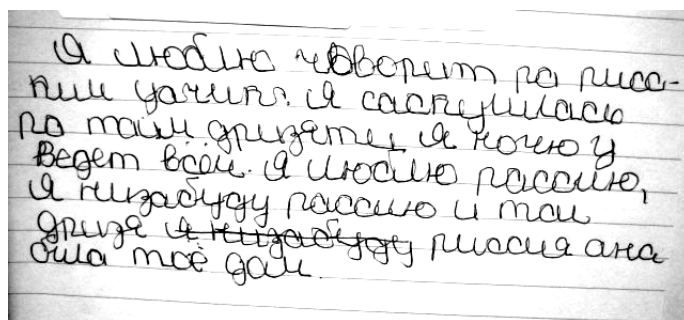 Я люблю човорит ра рисс-
ким уачит. я саскушлась
ра таим дризяти, я хочю у
ведет всей. я люблю рассию,
я низабуду рассию и таи
дризя я низабуду риссия ана
ома таё дам.